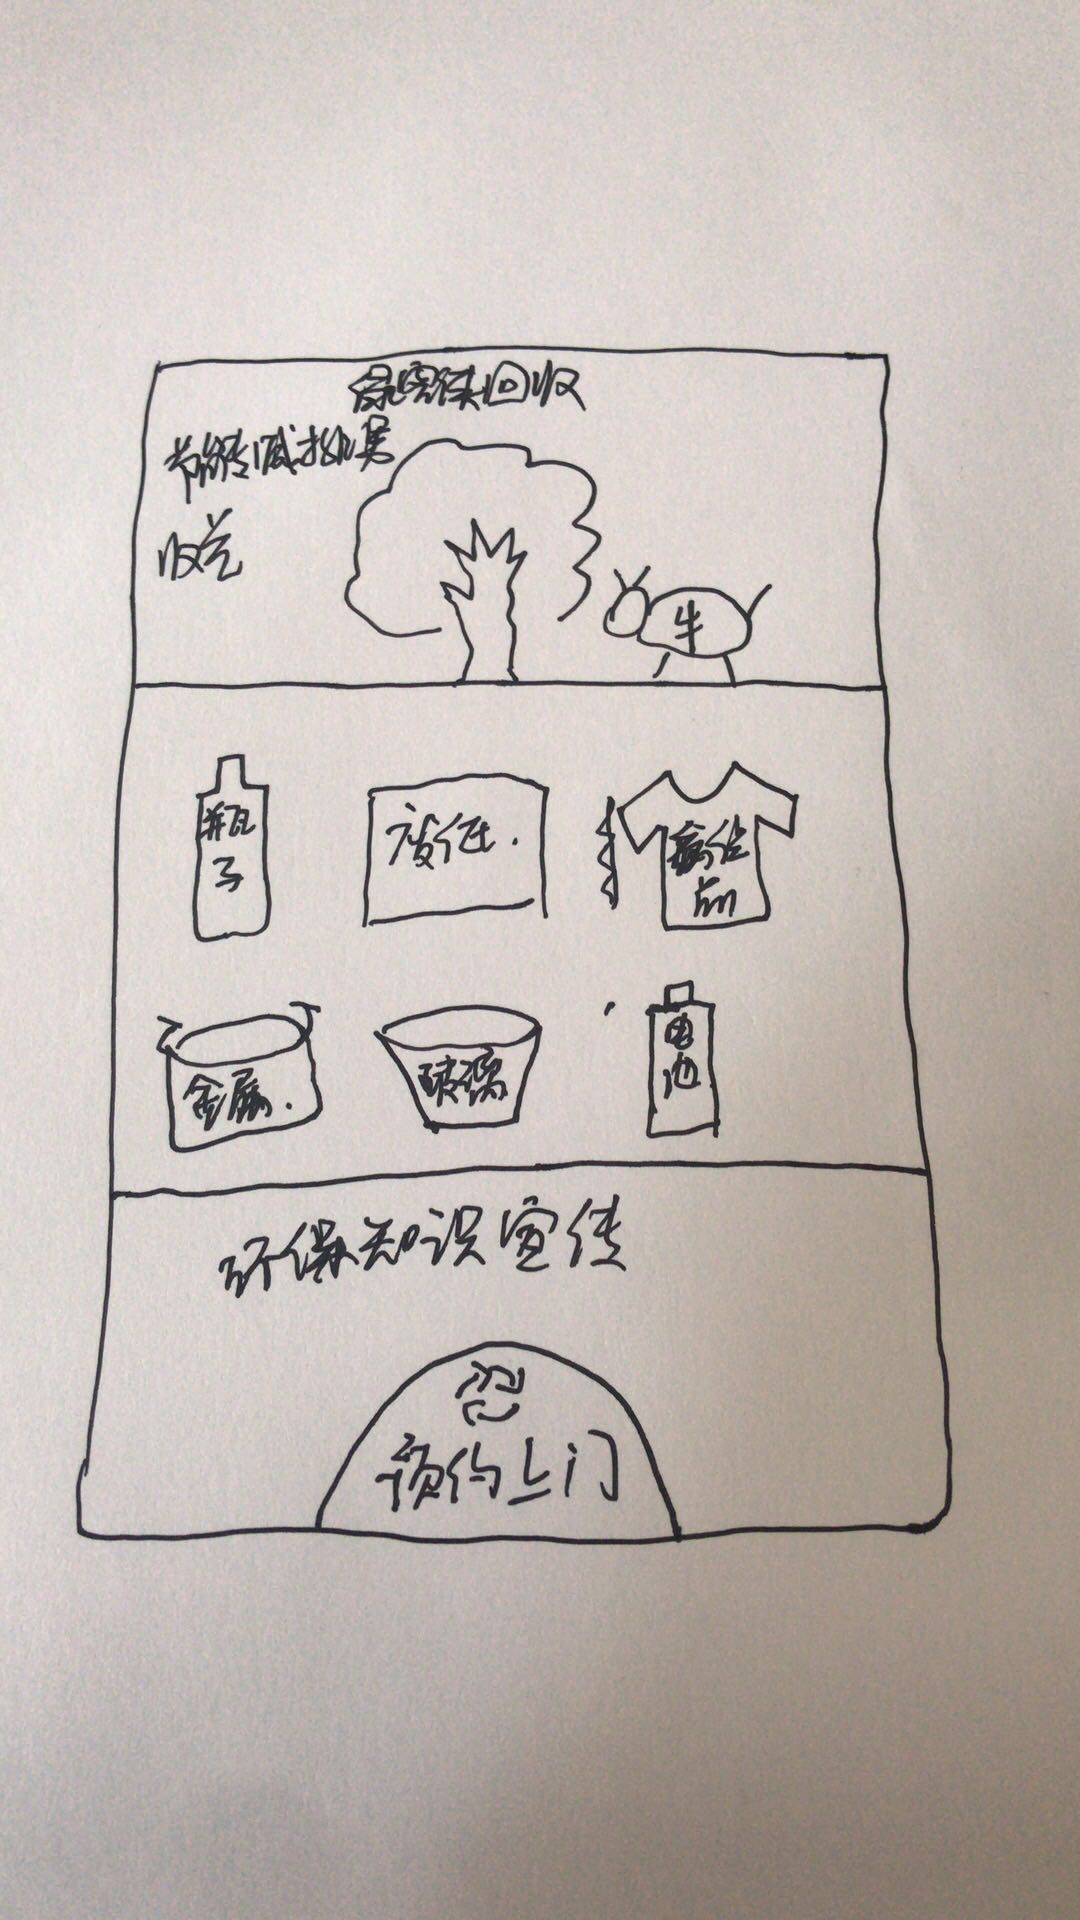 回收
节能减排
收益
牛
瓶
子
废纸.
金属.
玻璃
电
池
环保知识宣传
预约上门